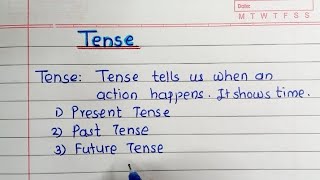 Date:
M T W T F S S
Tense
Tense: Tense tells us when an
action happens. It shows time.
1) Present Tense
2) Past Tense
3) Future Tense